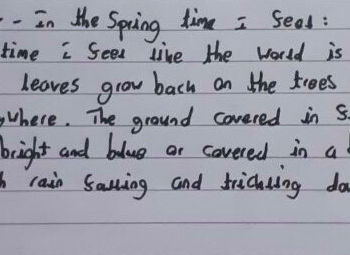 - - in the Spring time I Seas:
time i Sees like the World is
leaves grow back on the trees
where. The ground covared in S
bright and blue or covared in a
h rain Salling and trickling do